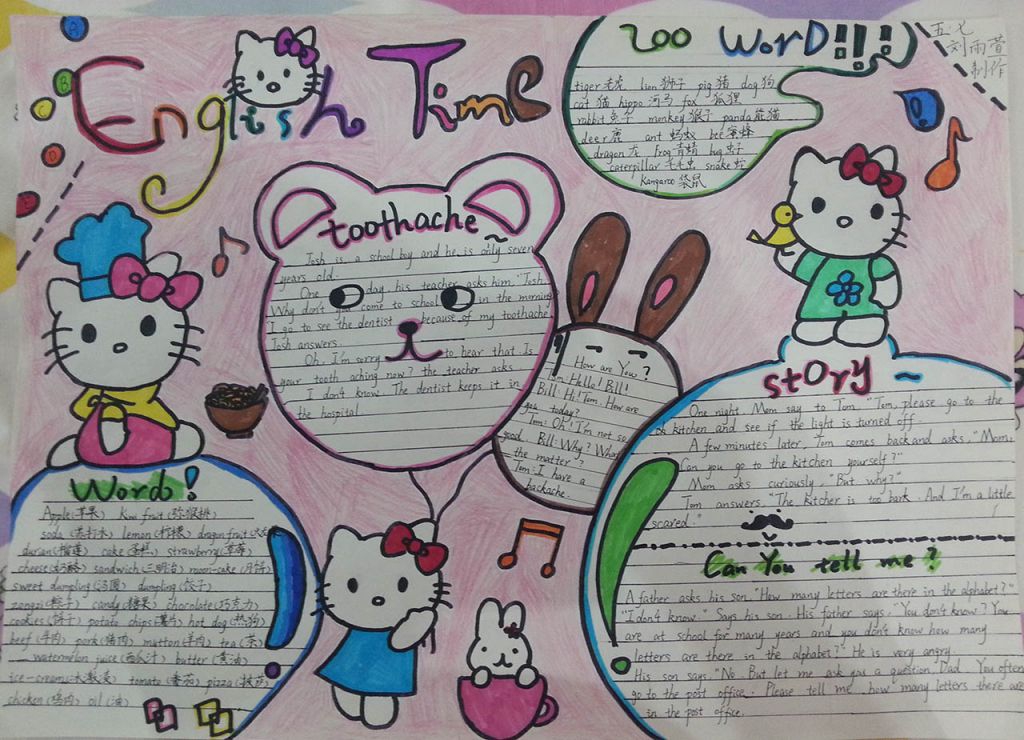 English Time
A
B
D
五七
刘雨萱
制作
Zoo Word!!!!
tiger 老虎 lion 狮子 pig 猪 dog 狗
cat 猫 hippo 河马 fox 狐狸
rabbit 兔子 monkey 猴子 panda 熊猫
deer 鹿 ant 蚂蚁 bee 蜜蜂
dragon 龙 frog 青蛙 bug 虫子
caterpillar 毛毛虫 snake 蛇
Kangaroo 袋鼠
toothache ~
Josh is a school boy and he is only seven
years old.
One day his teacher asks him, "Josh
Why don't you come to school in the morning
I go to see the dentist because of my toothache
Josh answers.
Oh, I'm sorry to hear that. Is
your tooth aching now? the teacher asks
I don't know. The dentist keeps it in
the hospital
How are You?
Tom: Hello! Bill!
Bill: Hi! Tom. How are
you today?
Tom: Oh! I'm not so
good. Bill: Why? What
the matter"?
Tom: I have a
backache.
Word!
Apple(苹果) Kiwi fruit (猕猴桃)
soda (苏打水) lemon (柠檬) dragon fruit
durian(榴莲) cake (蛋糕) strawberry(草莓)
cheese(奶酪) sandwich(三明治) moon-cake (月饼)
sweet dumpling (汤圆) dumpling (饺子)
zongzi(粽子) candy(糖果) chocolate(巧克力)
cookies(饼干) potato chips(薯片) hot dog(热狗)
beef (牛肉) pork(猪肉) mutton(羊肉) tea (茶)
watermelon juice (西瓜汁) butter (黄油)
ice-cream(冰激凌) tomato (番茄) pizza (披萨)
chicken (鸡肉) oil (油)
story ~
One night Mom say to Tom. "Tom, please go to the
kitchen and see if the light is turned off.
A few minutes later, Tom comes back and asks, "Mom,
Can you go to the kitchen yourself?"
Mom asks curiously, "But why?"
Tom answers, "The kitcher is too bark. And I'm a little
scared."
Can You tell me?
A father asks his son "How many letters are there in the alphabet?"
"I don't know." Says his son. His father says "You don't know? You
are at school for many years and you don't know how many
letters are there in the alphabet?" He is very angry.
His son says, "No. But let me ask you a question, Dad. You often
go to the post office. Please tell me how many letters there are
in the post office.